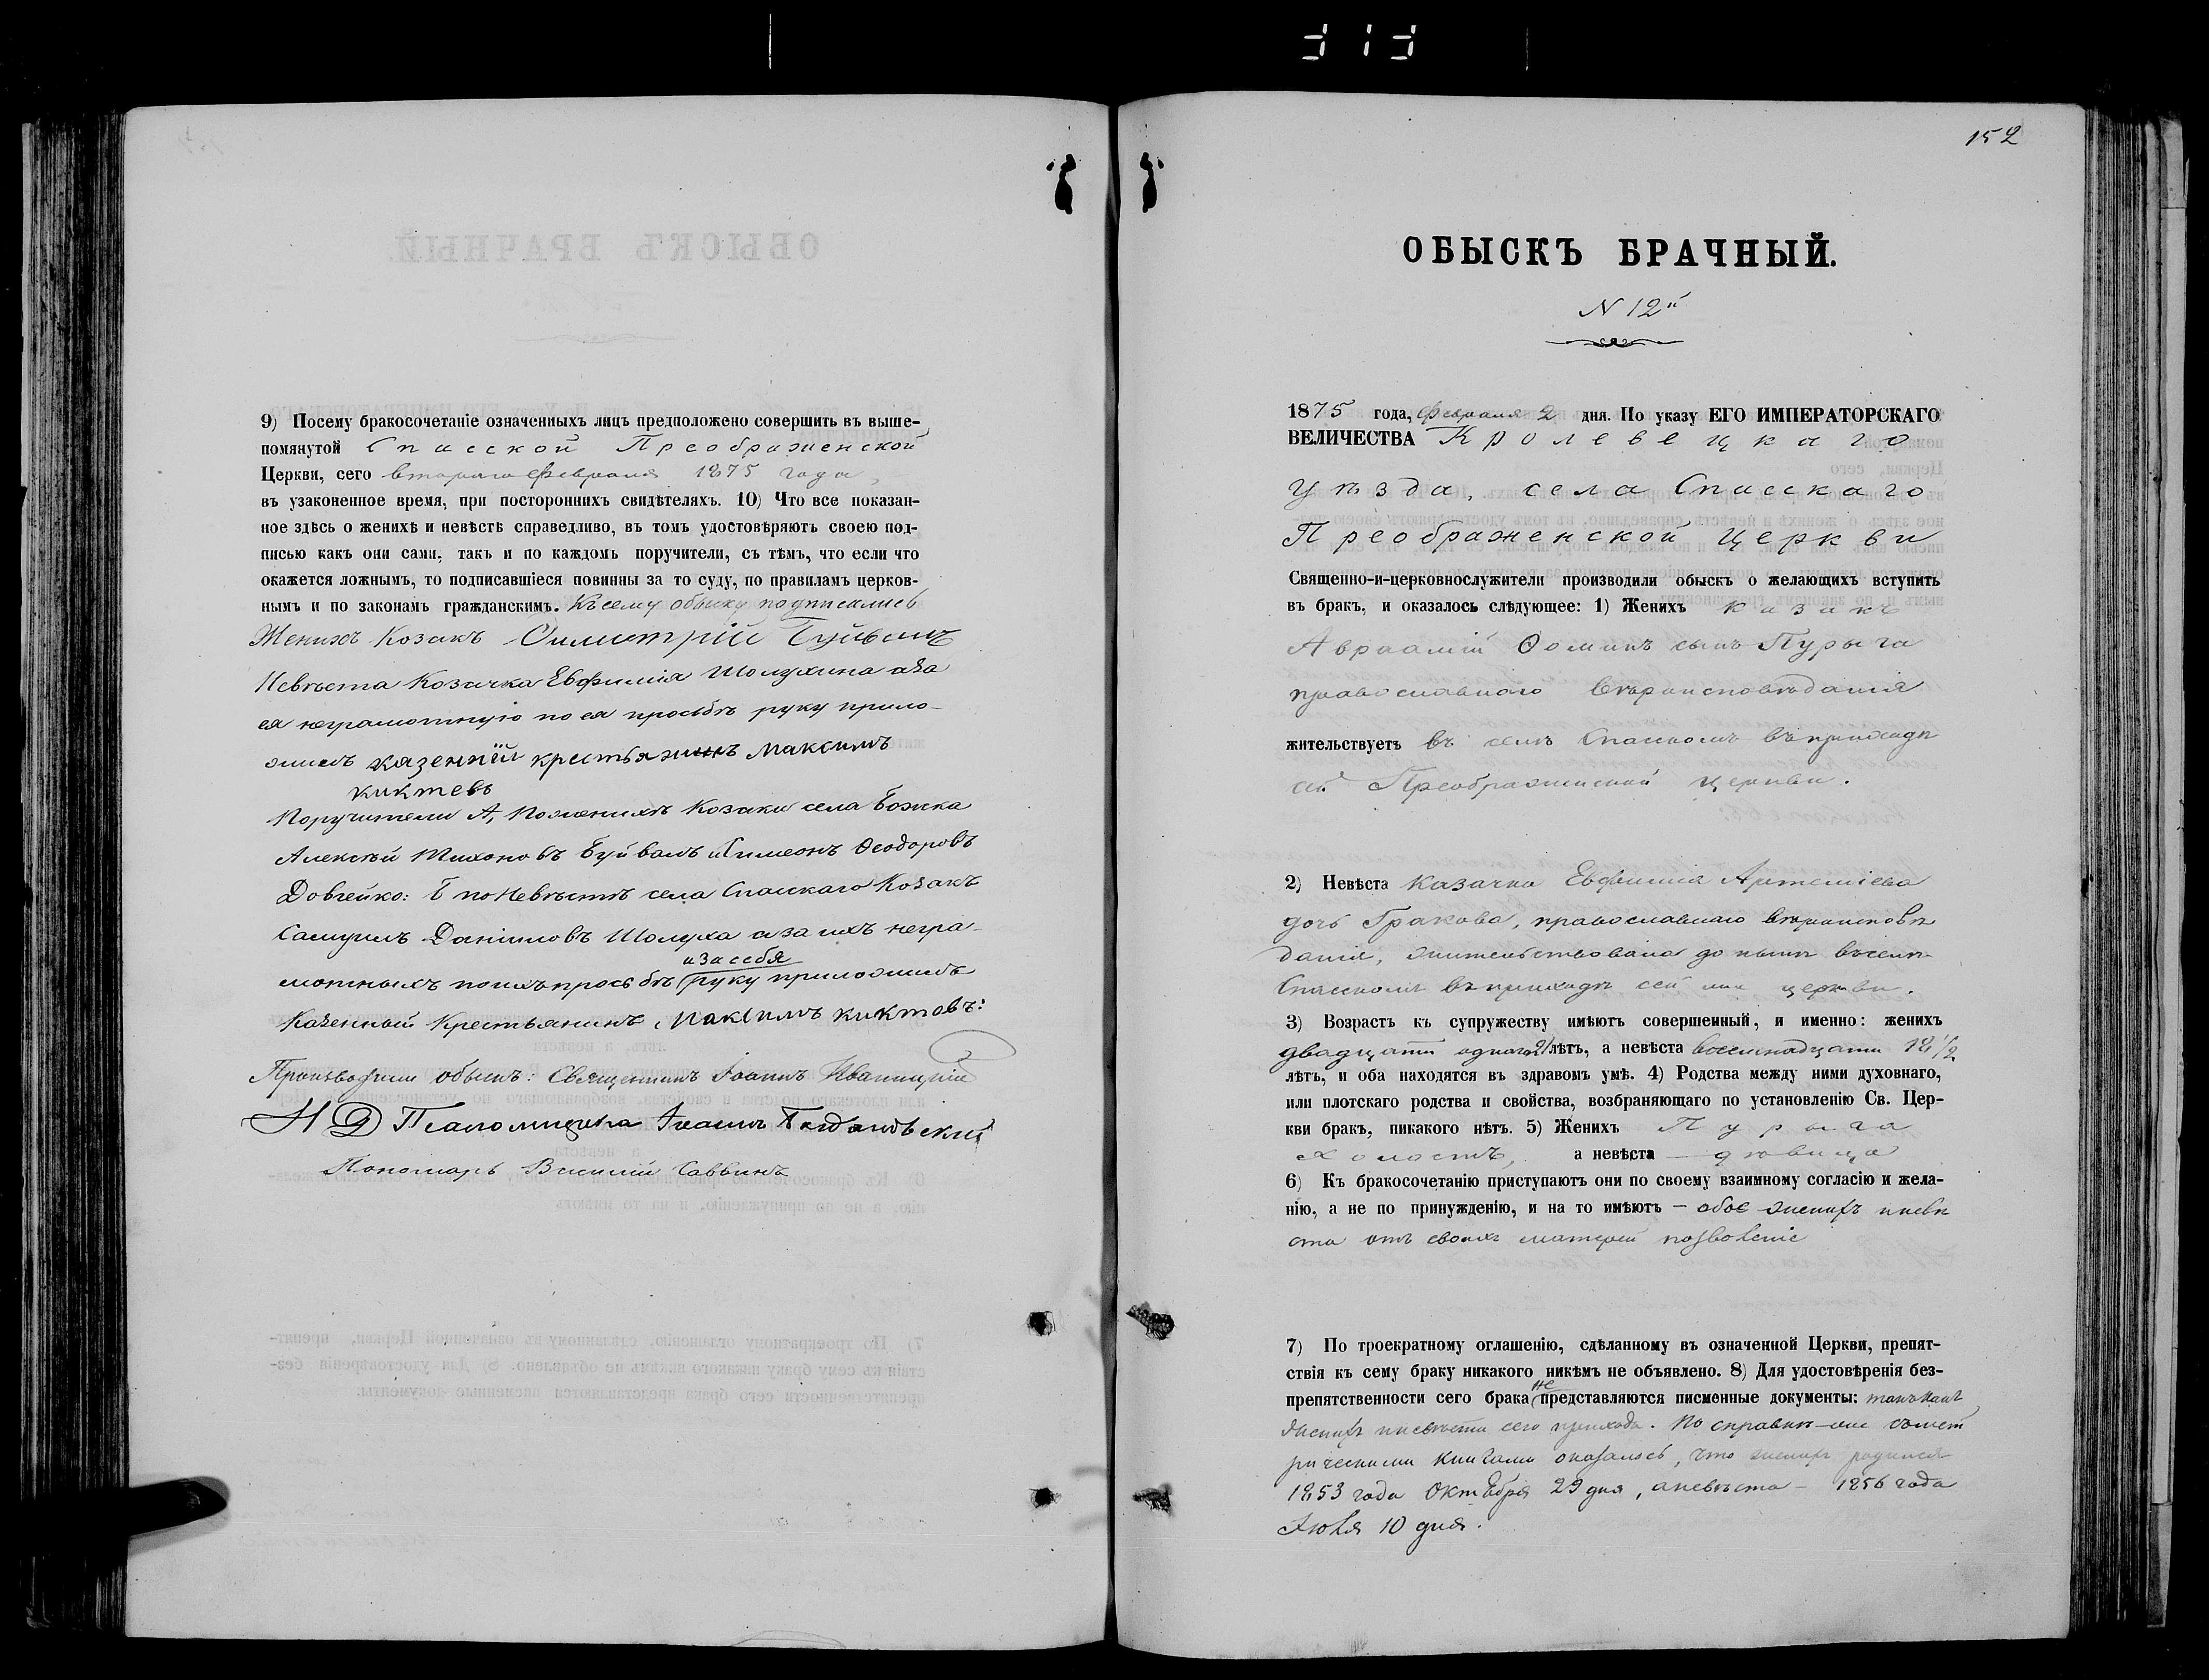 9) Посему бракосочетаніе означенныхъ лицъ предположено совершить въ выше-
помянутой Спасской Преображенской
Церкви, сего втораго Февраля 1875 года,
въ узаконенное время, при постороннихъ свидѣтеляхъ. 10) Что все показан-
ное здѣсь о женихѣ и невѣстѣ справедливо, въ томъ удостовѣряютъ своею под-
писью какъ они сами, такъ и по каждомъ поручители, съ тѣмъ, что если что
окажется ложнымъ, то подписавшіеся повинны за то суду, по правиламъ церков-
нымъ и по законамъ гражданскимъ. Къ сему обыску подписались
Женихъ Козакъ Буйвалъ
Невѣста Козачка Евфимія Шолухина а за
ея неграмотную по ея просьбѣ руку прило-
жилъ казенний крестьянинъ Максимъ
киктевъ
Поручители А, По женихѣ Козаки села Божка
Алексѣй Тихоновъ Буйвалъ и Симеонъ Ѳеодоровъ
Довгейко: Б по Невѣстѣ села Спасскаго Козакъ
Самуилъ Даниловъ Шолуха а за ихъ негра-
и за себя
мотныхъ по ихъ просьбѣ руку приложилъ
Казенный Крестьянинъ Максимъ киктовъ:
Производили обыскъ: Священникъ Іоаннъ
И Д Псаломщика Іоаннъ
Пономарь Василій Саввинъ
313
152
ОБЫСКЪ БРАЧНЫЙ.
N 12й
1875 года, Февраля 2 дня. По указу ЕГО ИМПЕРАТОРСКАГО
ВЕЛИЧЕСТВА Кролевецкаго
уѣзда, села Спасскаго
Преображенской Церкви
Священно-и-церковнослужители производили обыскъ о желающихъ вступить
въ бракъ, и оказалось слѣдующее: 1) Женихъ казакъ
Авраамій Ѳоминъ сынъ Пурыга
православнаго вѣроисповѣданія
жительствуетъ въ селѣ Спасскомъ въ приходѣ
сей Преображенской церкви.
2) Невѣста казачка Евфимія Артеміева
дочь Гракова, православнаго вѣроисповѣ
данія, жительствовала до нынѣ въ селѣ
Спасскомъ въ приходѣ сей же церкви.
3) Возрастъ къ супружеству имѣютъ совершенный, и именно: женихъ
двадцати одного 21 лѣтъ, а невѣста восемнадцати 18 1/2
лѣтъ, и оба находятся въ здравомъ умѣ. 4) Родства между ними духовнаго,
или плотскаго родства и свойства, возбраняющаго по установленію Св. Цер-
кви бракъ, никакого нѣтъ. 5) Женихъ Пурыга
холостъ, а невѣста — дѣвица
6) Къ бракосочетанію приступаютъ они по своему взаимному согласію и жела-
нію, а не по принужденію, и на то имѣютъ — обое женихъ и невѣ
ста отъ своихъ матерей позволеніе
7) По троекратному оглашенію, сдѣланному въ означенной Церкви, препят-
ствія къ сему браку никакого никѣмъ не объявлено. 8) Для удостовѣренія без-
препятственности сего брака не представляются писменные документы: такъ какъ
женихъ и невѣста сего прихода. По справкѣ же съ мет
рическими книгами оказалось, что женихъ родился
1853 года Октября 29 дня, а невѣста — 1856 года
Іюля 10 дня.